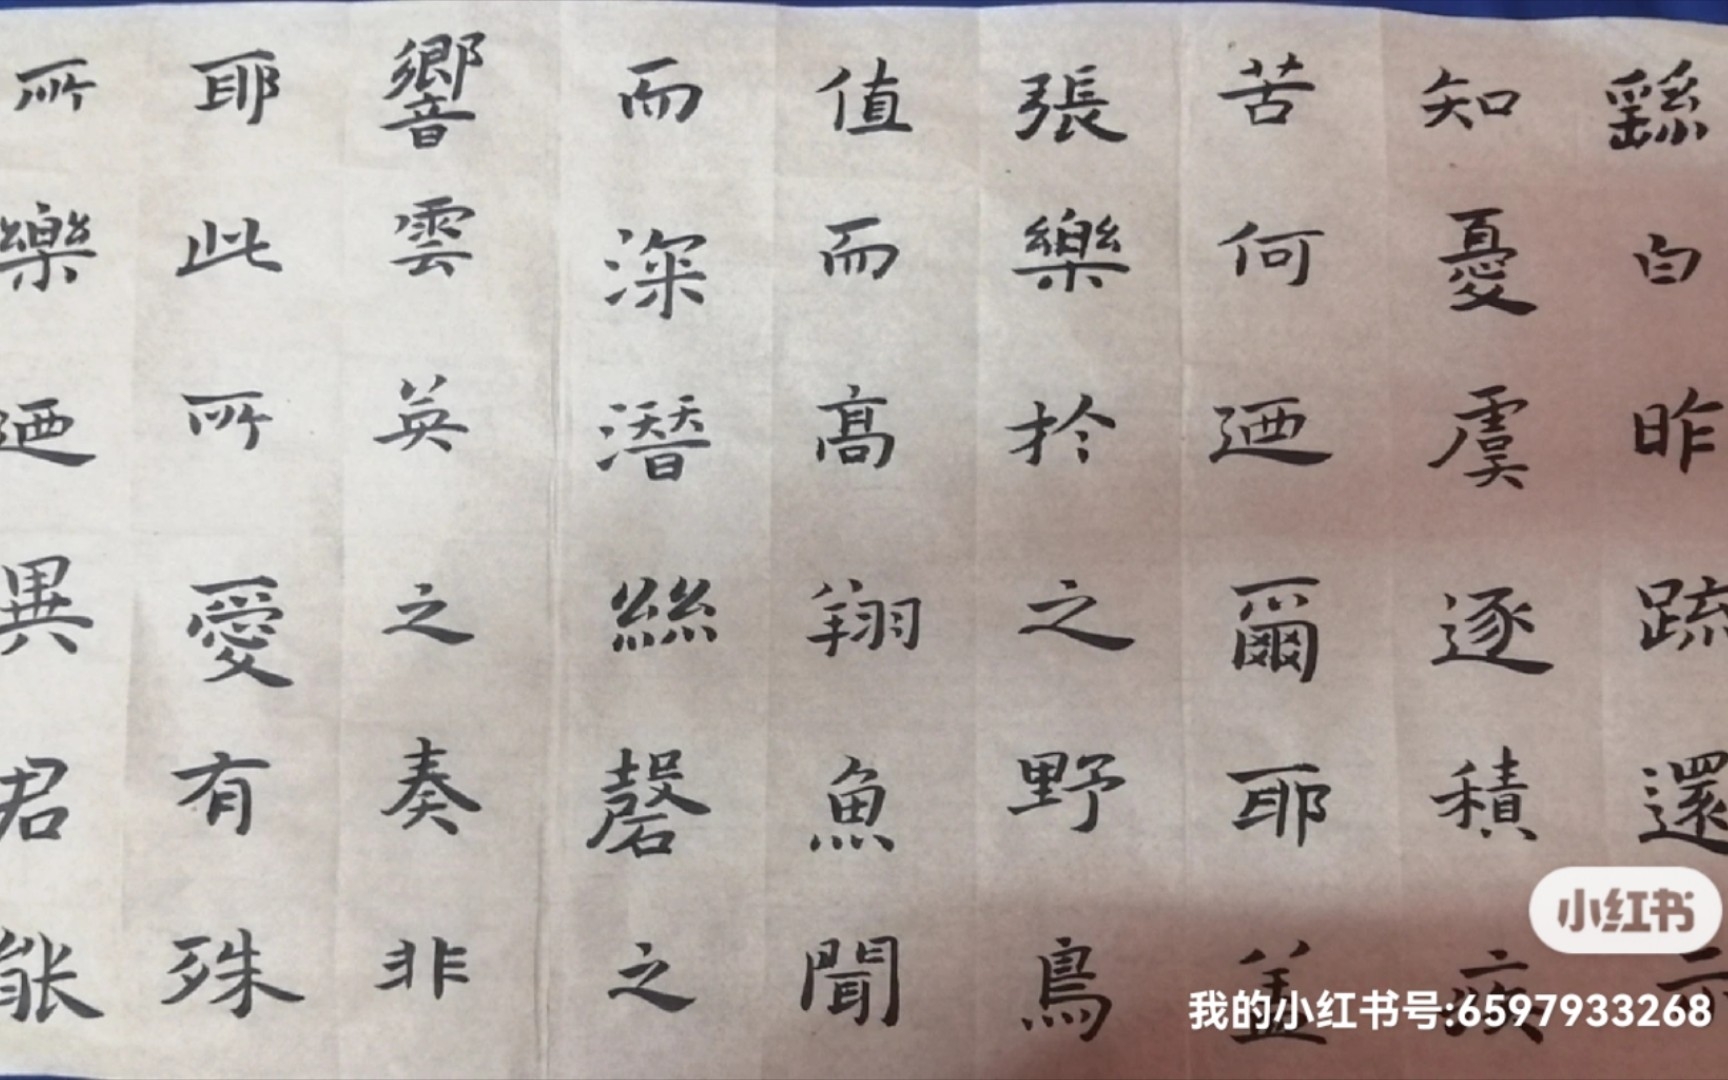 繇白昨疏還示
知憂虞逐積疢
苦何迺爾耶蓋
張樂於之野鳥
值而高翔魚聞
而深潛絲磬之
響雲英之奏非
耶此所愛有殊
所樂迺異君能
小红书
我的小红书号:6597933268